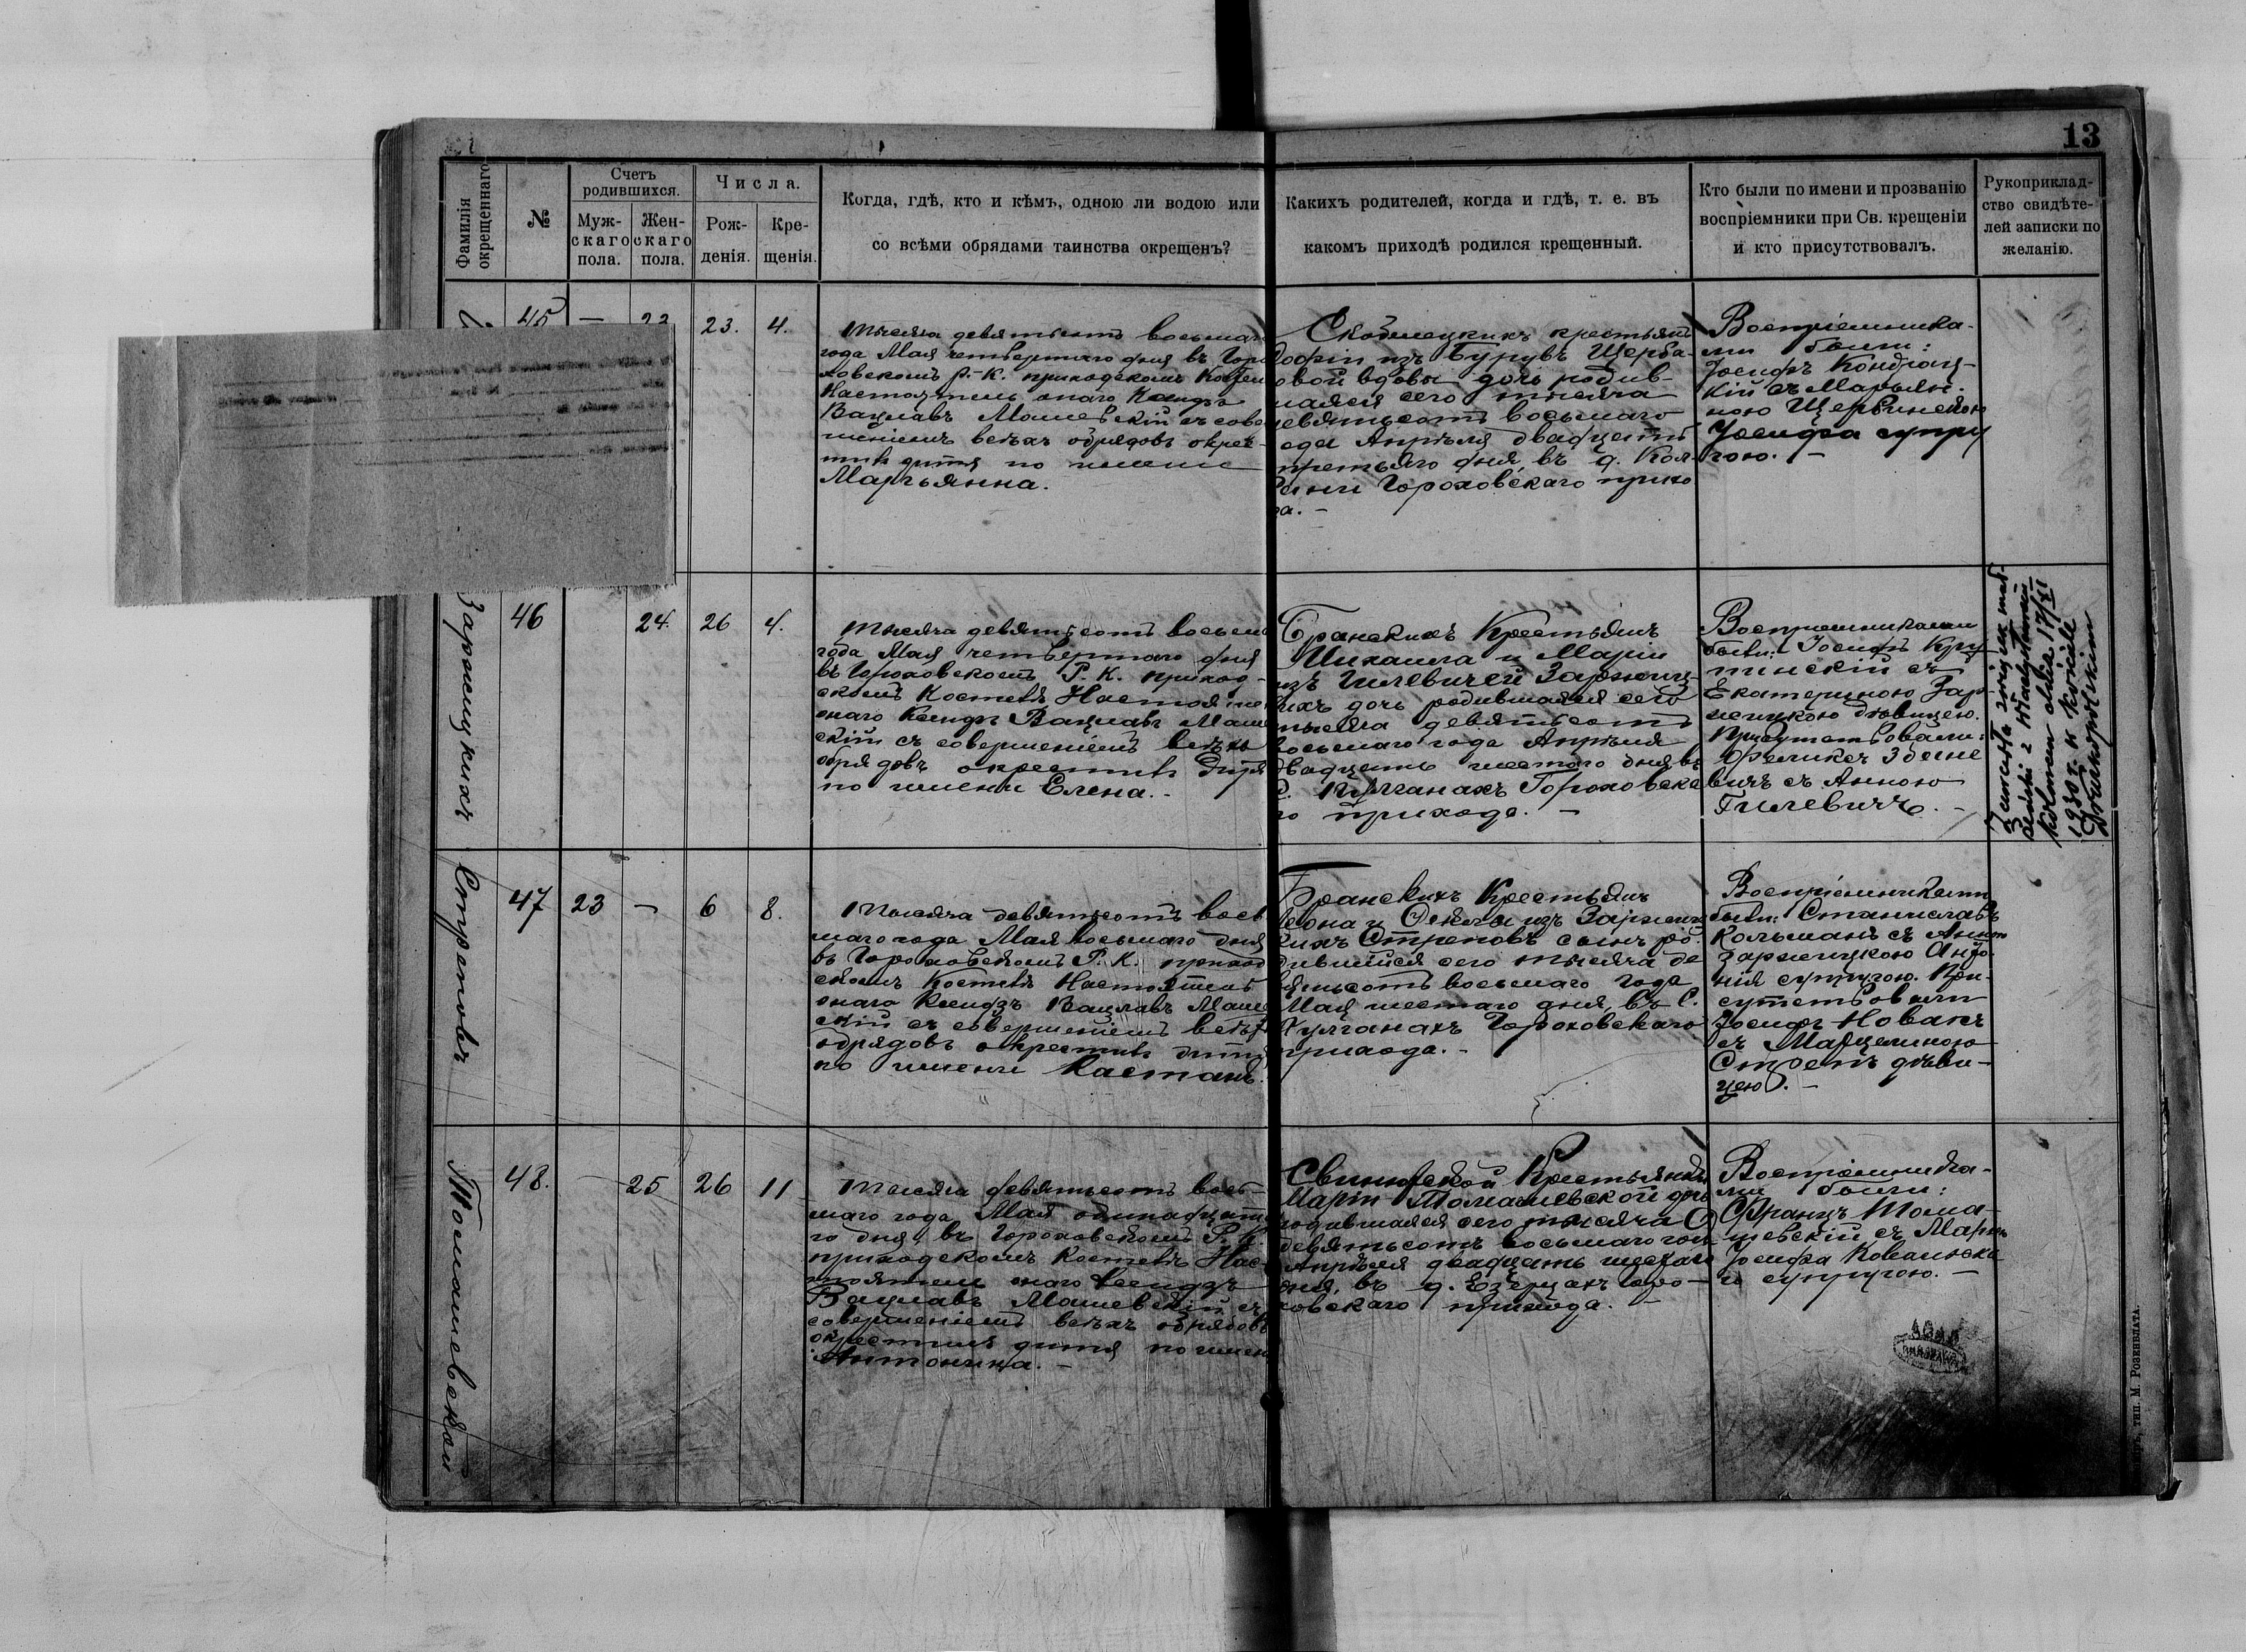 13
Фамилія
окрещеннаго
№
Счетъ
родившихся.
Муж-
скаго
пола.
Жен-
скаго
пола.
Числа.
Рож-
денія.
Кре-
щенія.
Когда, гдѣ, кто и кѣмъ, одною ли водою или
со всѣми обрядами таинства окрещенъ?
Какихъ родителей, когда и гдѣ, т. е. въ
какомъ приходѣ родился крещенный.
Кто были по имени и прозванію
воспріемники при Св. крещеніи
и кто присутствовалъ.
Рукоприклад-
ство свидѣте-
лей записки по
желанію.
45
—
23
23.
4.
Тысяча девятьсотъ восьмаго
года Мая четвертаго дня въ Горо
ховскомъ Р.-К. приходскомъ Костел
Настоятель онаго Ксендзъ
Вацлавъ Машевскій съ сове
шеніемъ всѣхъ обрядовъ окрес-
тилъ дитя по имени
Марьянна.
крестьянъ
Зофіи изъ Щерба-
овой вдовы дочь родив-
шаяся сего тысяча
девятьсотъ восьмаго
ода Апрѣля двадцать
третьяго дня, въ д. Кол-
Гороховскаго прихо
да. —
Воспріемника-
ми были:
Іосифъ Кондрац-
кій съ Марьян-
ною Щербинскою
Іосифа супру
гою. —
Заржицкихъ
46
24.
26
4.
Тысяча девятьсотъ восьма
года Мая четвертаго дня
въ Гороховскомъ Р. К. приход-
скомъ Костелѣ Настояте
онаго Ксендзъ Вацлавъ Маше
скій съ совершеніемъ всѣхъ
обрядовъ окрестилъ дитя
по имени Елена. -
Бранскихъ Крестьянъ
Михаила и Маріи
изъ Гилевичей Заржиц-
кихъ дочь родившаяся сего
тысяча девятьсотъ
восьмаго года Апрѣля
двадцать шестого дня въ
с. Кулганахъ Гороховска
го прихода. —
Воспріемниками
были: Іосифъ Кру
пинскій съ
Екатериною Зар
жицкою дѣвицею.
Присутствовали:
Феликсъ Збыше
вичъ съ Анною
Гилевичъ. —
Zawarła związek mał-
żeński z Władysławem
Kolmanem dnia 17/XI
1930 r. w kościele
Стреповъ
47
23
—
6
8.
Тысяча девятьсотъ вось
маго года Мая восьмаго дня
въ Гороховскомъ Р. К. приход
скомъ Костелѣ Настоятель
онаго Ксендзъ Вацлавъ Маше
скій съ совершеніемъ всѣхъ
обрядовъ окрестилъ дитя
по имени Каетанъ.
Бранскихъ Крестьянъ
Леона и Феклы изъ Заржиц
кихъ Стреповъ сынъ ро-
дившійся сего тысяча де
вятьсотъ восьмаго года
Мая шестаго дня, въ с.
Кулганахъ Гороховскаго
прихода. -
Воспріемниками
были: Станиславъ
Кольманъ съ Анною
Заржицкою Анто-
нія супругою. При-
сутствовали
Іосифъ Новакъ
съ Марцелиною
Стрепъ дѣви-
цею. —
Томашевской
48.
—
25
26
11
Тысяча девятьсотъ вось-
маго года Мая одинадцата
го дня, въ Гороховскомъ Р. К.
приходскомъ Костелѣ Нас-
тоятель онаго Ксендзъ
Вацлавъ Машевскій съ
совершеніемъ всѣхъ обрядовъ
окрестилъ дитя по имени
Антонина. —
Свинюхской Крестьянки
Маріи Томашевской дочь
родившаяся сего тысяча
девятьсотъ восьмаго года
Апрѣля двадцать шестаго
дня, въ д. Езерцахъ Горо—
ховскаго прихода. —
Воспріемника-
ми были:
Францъ Тома-
шевскій съ Маріею
Іосифа Ковальска
го супругою. —
тип. М. Розенблата.